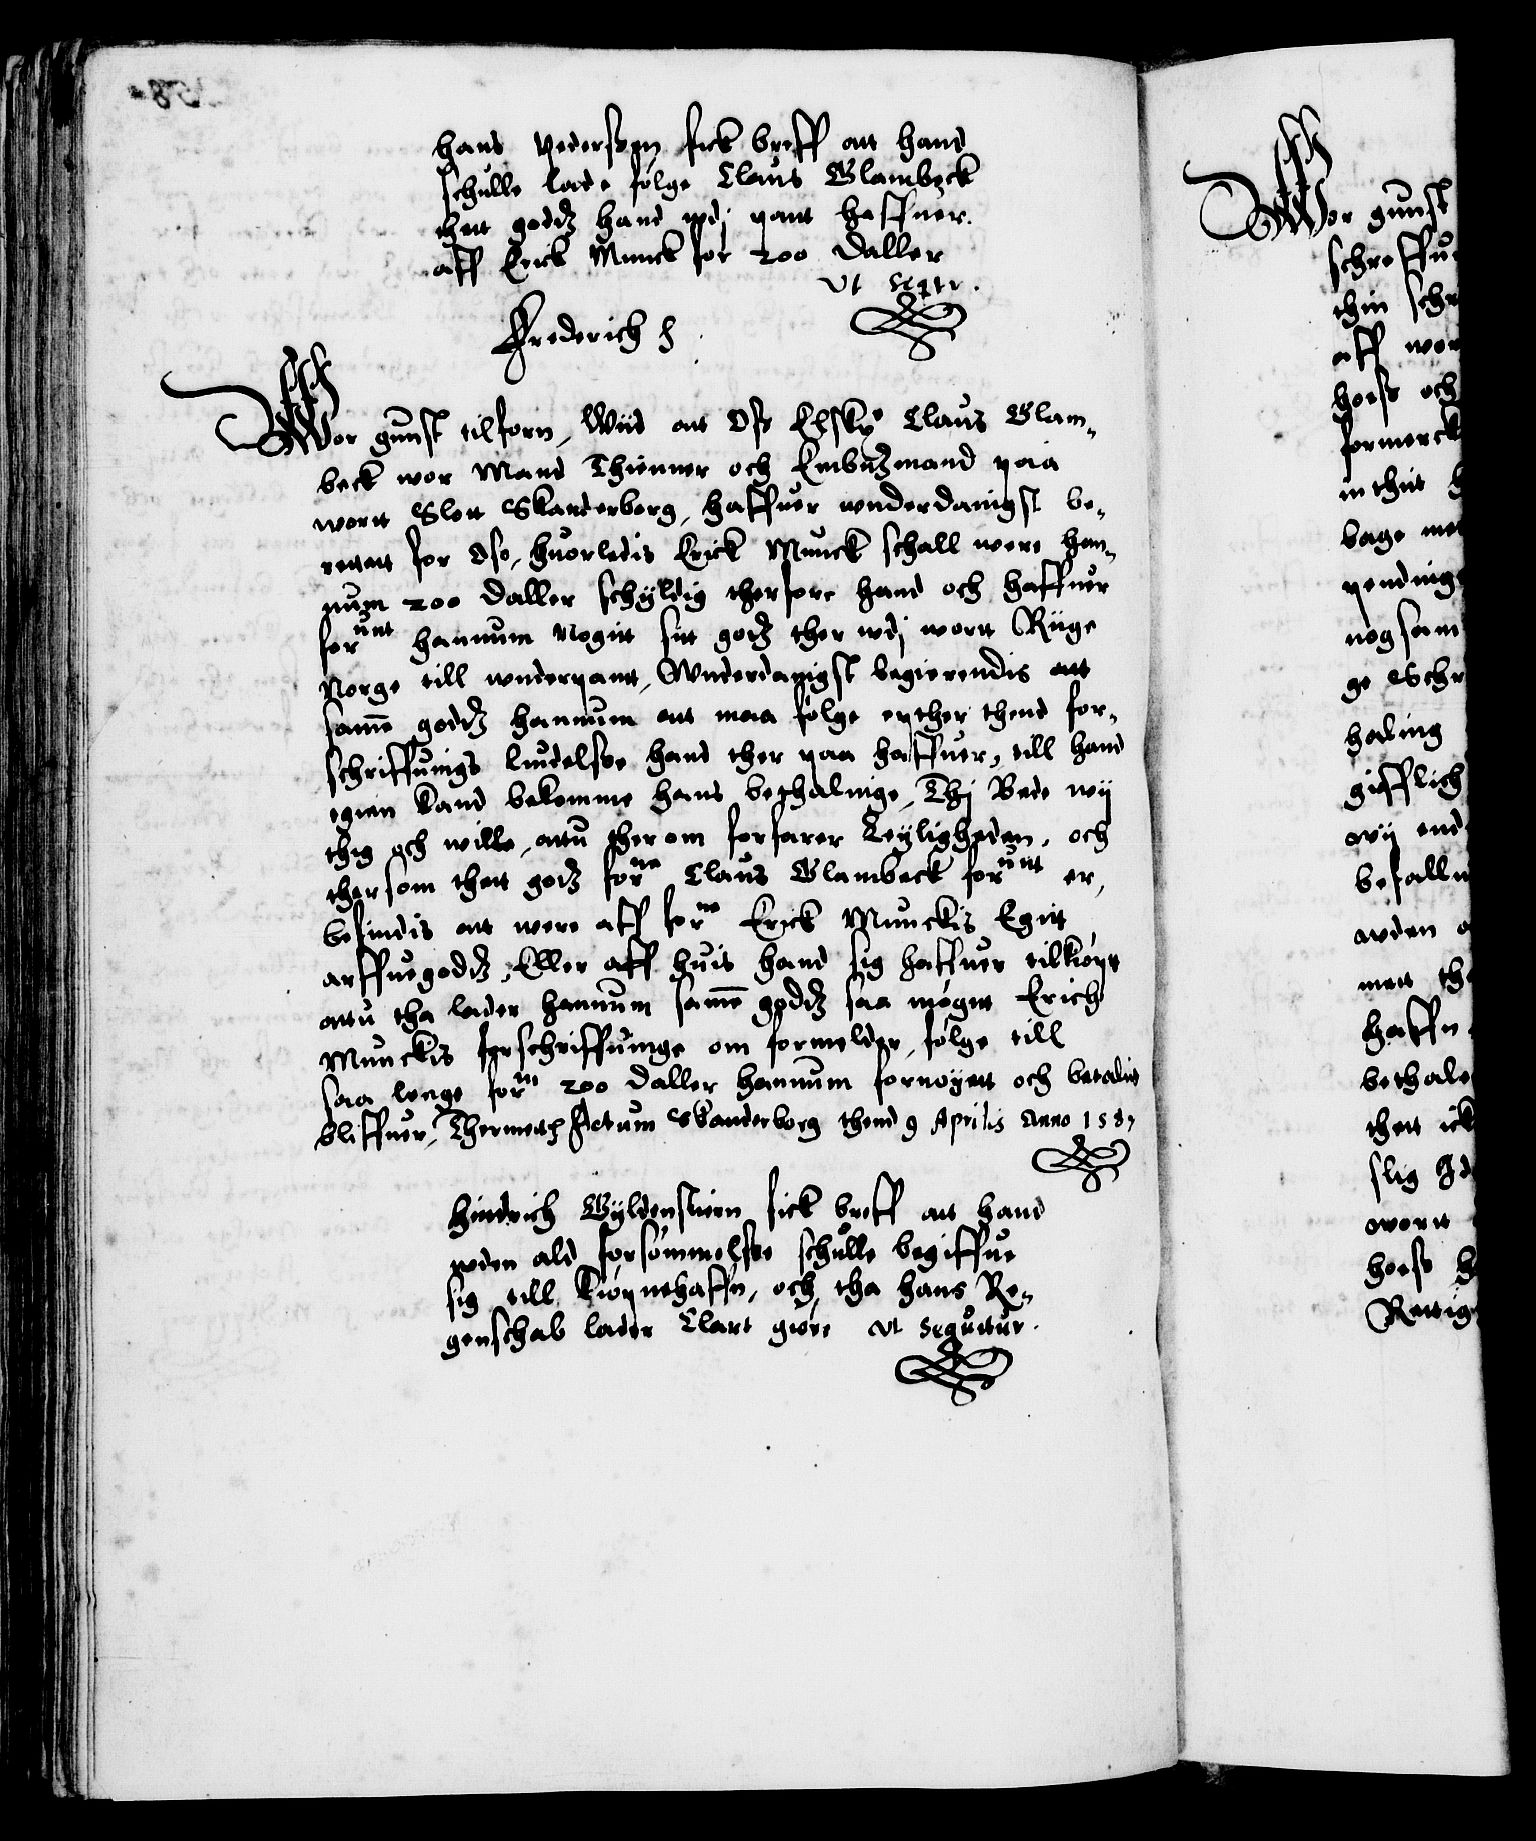 Hans Pederssøn fick breff att hand
schulle lade følge Claus Glambeck
thett godtz hand udj pant haffuer.
aff Erick Munck for 200 daller
Ut seqtr.
Frederich
Wor gunst tilforn, Wiid att Oss Elske Claus Glam„
beck wor Mand Thienner och Embitzmand paa
wortt Slott Skanderborg, haffuer wnderdanigst be„
rettett for Oss, huorledis Erick Munck schall were han„
num 200 daller schyldig therfore hand och haffuer
forunt hannum nogitt sitt godtz ther wdj wortt Riige
Norge till wnderpantt, Wnderdanigst begierendis att
samme godtz hannum att maa følge epther thend for„
schriffuings liudelsse hand ther paa haffuer, till hand
egien kand bekomme hans bethalinge, Thj Bede wij
thig och wille, attu ther om forfarer Leyligheden, och
ther som thett godtz forne Claus Glambeck forunt er,
befindis att were aff forne Erick Munckis Egitt
arffuegodtz, Eller aff huis hand sig haffuer tilkiøpt
attu tha lader hannum samme godtz saa mogitt Erich
Munckis forschriffuinge om formelder, følge till
saa lenge forne 200 daller hannum fornøyett och betalit
bliffuer, Thermett Actum Skanderborg thend 9 Aprilis Anno 1587
Hindrich Gyldenstiern fick breff att hand
uden ald forsømmelsse schulle begiffue
sig till Kiøpnehaffn, och tha hans Re„
genschab lader Clart giøre ut sequitur.
Wor gunst
schreffue
thin schr
aff wor
hoess och
formerck
bage me
pendinge
nogsam
ge Schr
haling
gifflich
wij end
befalle
anden
mett th
haffn
bethale
thett ick
slig
wortt
hoess h
Rettig